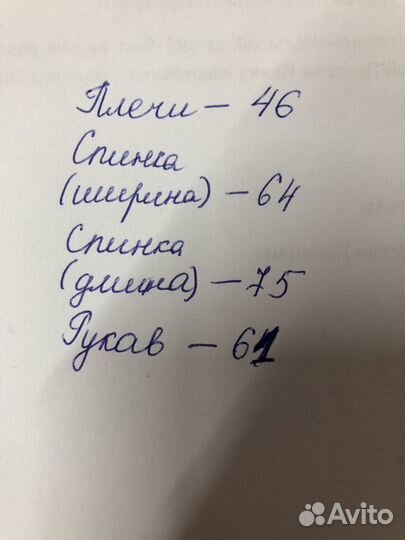 Плечи – 46
Спинка
(ширина) – 64
Спинка
(длина) – 75
Рукав – 61
Avito